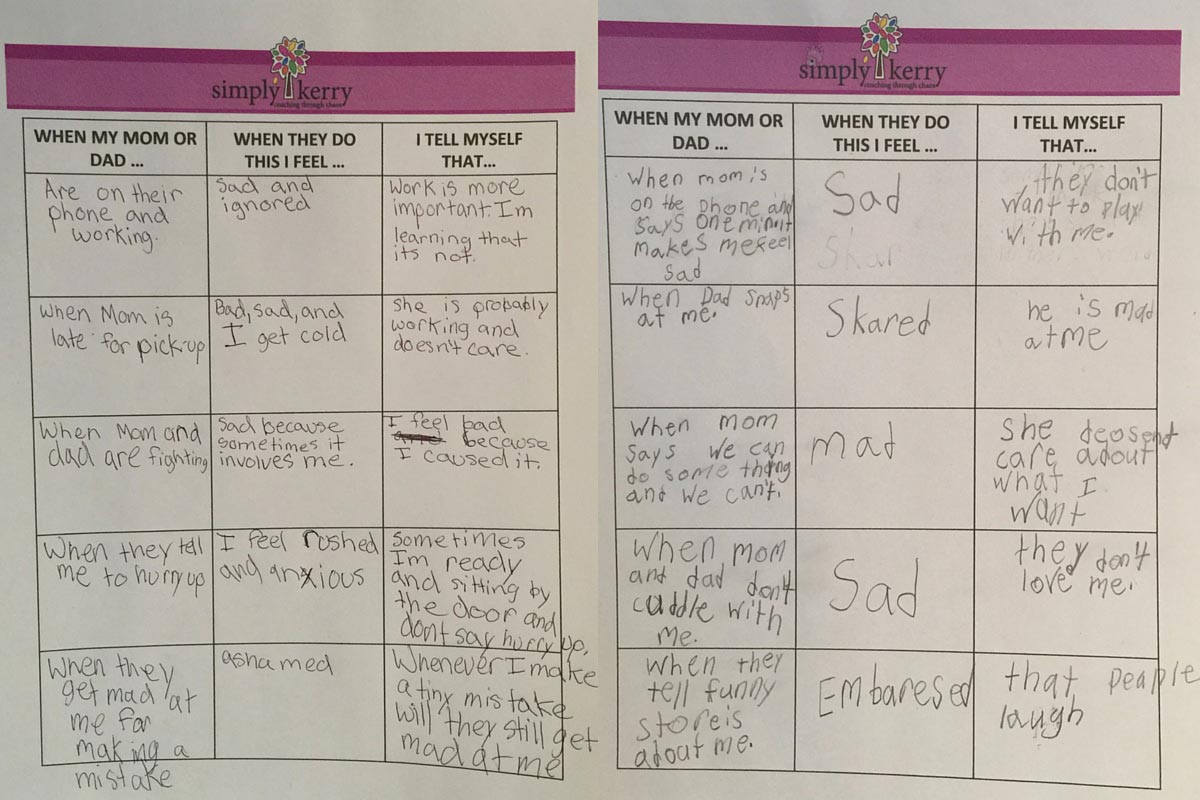 simply kerry
coaching through chaos
WHEN MY MOM OR
DAD ...
WHEN THEY DO
THIS I FEEL ...
I TELL MYSELF
THAT...
Are on their
phone and
working.
Sad and
ignored
Work is more
important. I'm
learning that
its not.
When Mom is
late for pick-up
Bad, sad, and
I get cold
She is probably
working and
doesn't care.
When Mom and
dad are fighting
Sad because
sometimes it
involves me.
I feel bad
because
I caused it.
When they tell
me to hurry up
I feel roshed
and anxious
Sometimes
Im ready
and sitting by
the door and
dont say hurry up.
When they
get mad at
me for
making a
mistake
ashamed
Whenever I make
a tiny mistake
will they still get
mad at me
simply kerry
coaching through chaos
WHEN MY MOM OR
DAD ...
WHEN THEY DO
THIS I FEEL ...
I TELL MYSELF
THAT...
When mom is
on the phone and
says one minit
makes me feel
sad
Sad
Skar
they don't
want to play
with me.
When Dad snaps
at me.
Skared
he is mad
at me
When mom
says we can
do some thing
and we can't.
mad
She deosent
care adout
what I
want
When mom
and dad don't
cuddle with
me.
Sad
they don't
love me.
When they
tell funny
storeis
adout me.
Embaresed
that peaple
laugh